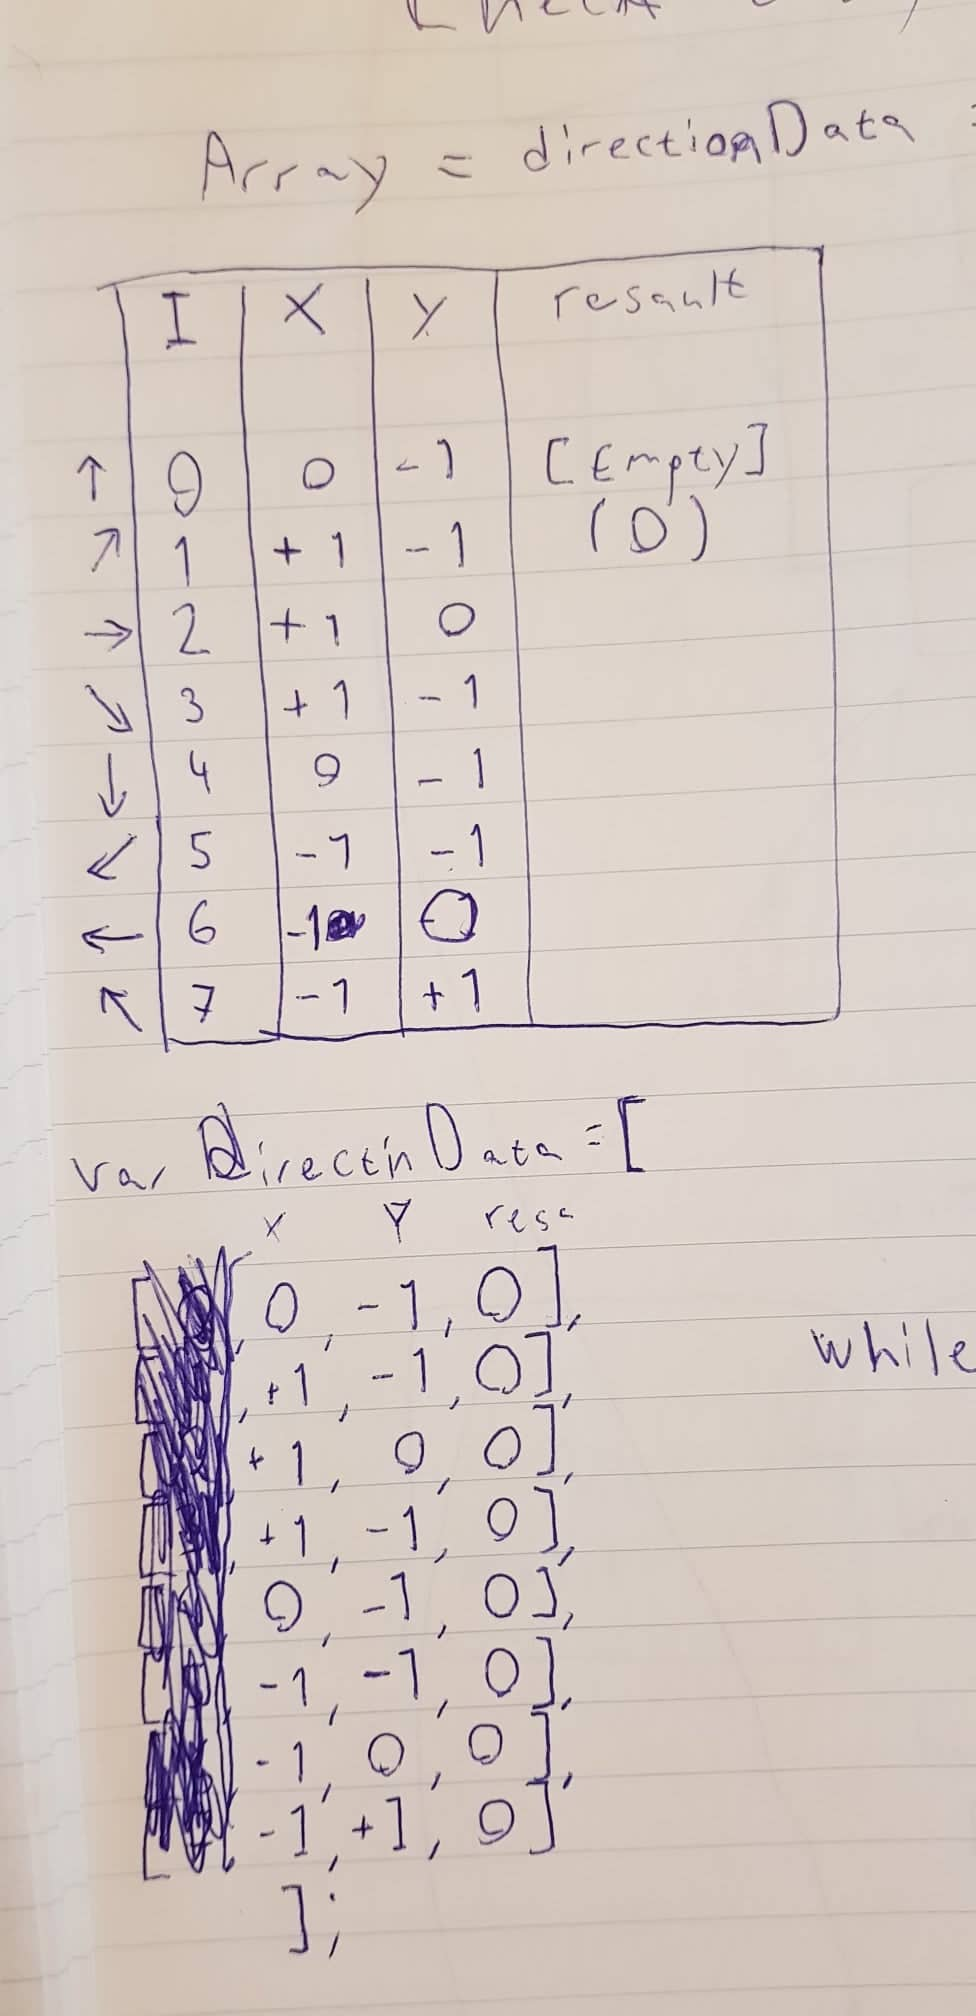 Array = directionData =
I X Y resault
↑ 0 0 -1 [Empty]
(0)
↗ 1 +1 -1
→ 2 +1 0
↘ 3 +1 -1
↓ 4 0 -1
↙ 5 -1 -1
← 6 -1 0
↖ 7 -1 +1
var directinData =[
X Y resa
[0, -1, 0],
, +1, -1, 0],
+1, 0, 0],
, +1, -1, 0],
0, -1, 0],
-1, -1, 0],
-1, 0, 0],
-1, +1, 0]
];
while